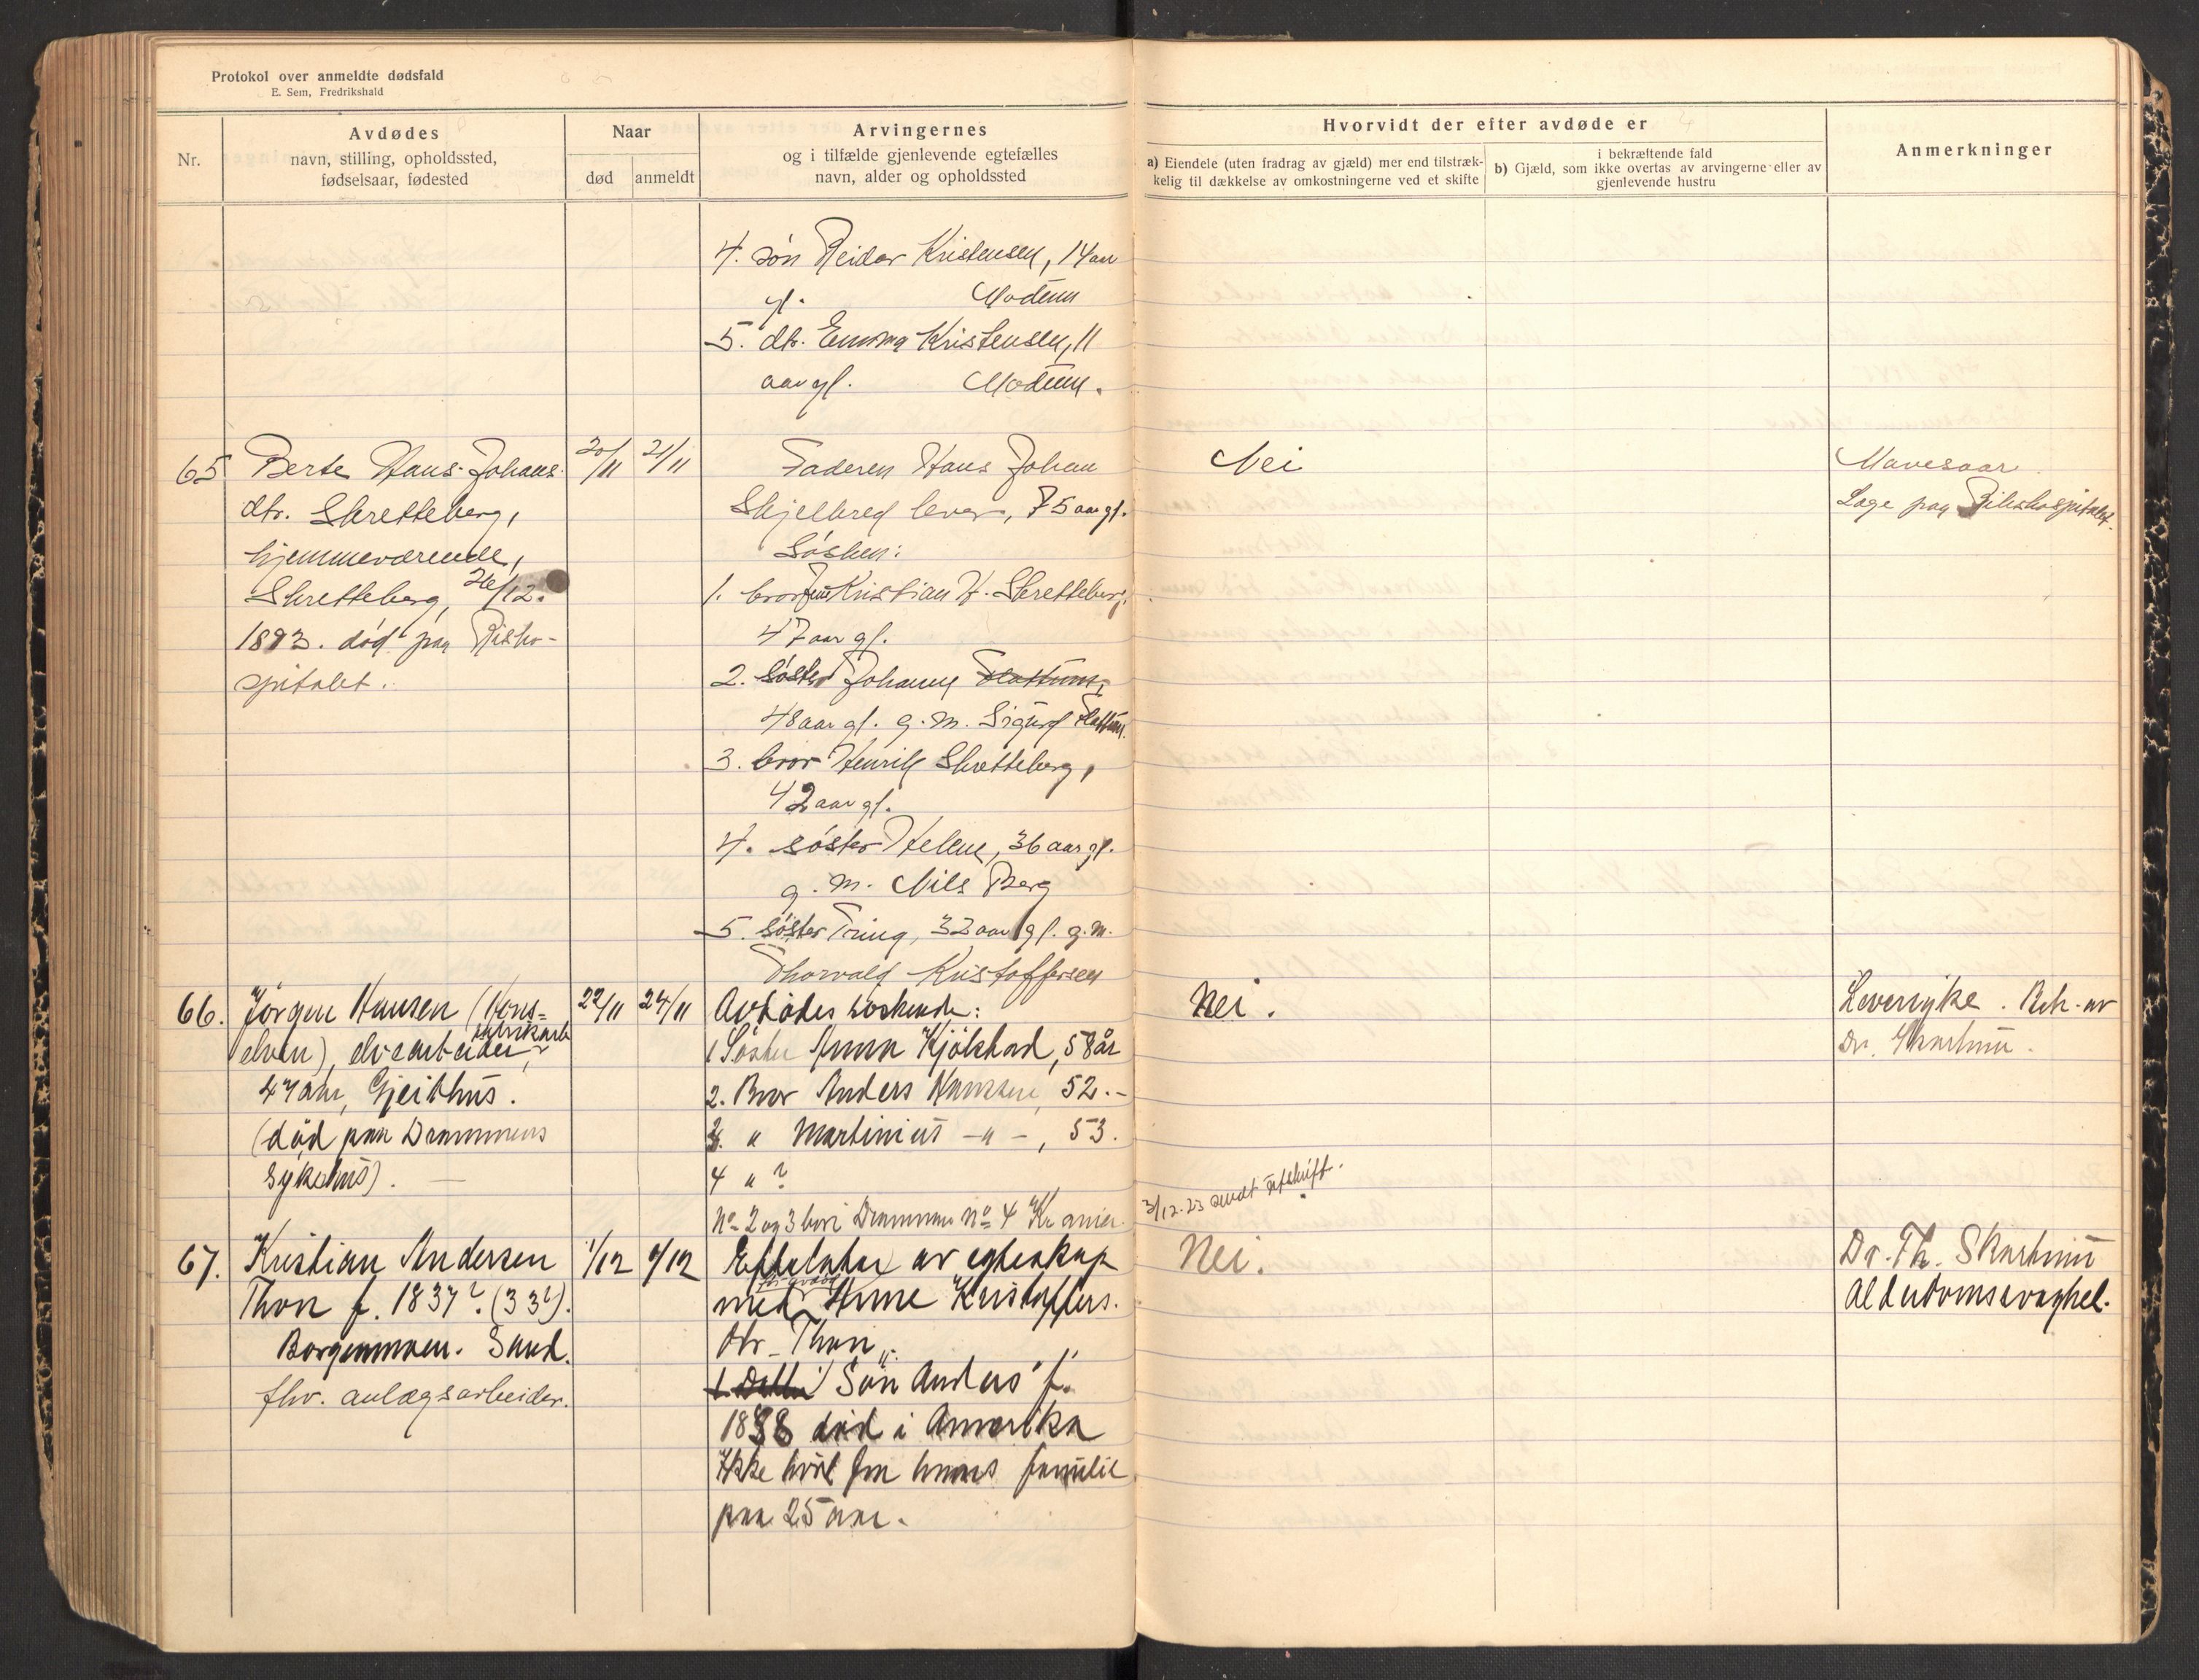 Protokol over anmeldte dødsfald
E. Sem, Fredrikshald
Nr.
Avdødes
navn, stilling, opholdssted,
fødselsaar, fødested
Naar
død
anmeldt
Arvingernes
og i tilfælde gjenlevende egtefælles
navn, alder og opholdssted
Hvorvidt der efter avdøde er
a) Eiendele (uten fradrag av gjæld) mer end tilstræk-
kelig til dækkelse av omkostningerne ved et skifte
i bekræftende fald
b) Gjæld, som ikke overtas av arvingerne eller av
gjenlevende hustru
Anmerkninger
4. søn Reidar Kristensen, 14 aar
gl. Modum
5. dtr. Emma Kristensen, 11
aar gl. Modum.
65
Berte Hans-Johans
dtr. Skretteberg,
hjemmeværende,
Skretteberg, 26/12.
1893. død paa Riksho-
spitalet.
20/11
21/11
Faderen Hans Johan
Skjelbred lever, 75 aar gl.
Søsken:
1. bror Kristian H. Skretteberg,
47 aar gl.
2. søster Johanne Flattum,
48 aar gl. g. m. Sigurd Flattum.
3. bror Henrik Skretteberg,
42 aar gl.
4. søster Helene, 36 aar gl.
g. m. Nils Berg
5. søster Trine, 32 aar gl. g. m.
Thorvald Kristoffersen
Nei
Mavesaar.
Læge paa Rikshospitalet.
66.
Jørgen Hansen (Hons-
fabrikarb
elven), elvearbeider,
47 aar, Gjeithus.
(død paa Drammens
sykehus).
22/11
24/11
Avdødes søskende:
1 Søster Anna Kjølstad, 58 år
2. Bror Anders Hansen, 52.-
3. " Martinius -"-, 53.
4 " ?
No 2 og 3 bor i Drammen No 4 Kr.ania.
Nei.
3/12.23 sendt utskrift.
Leversyke. Beh. av
Dr. Skartum.
67.
Kristian Andersen
Thon f. 1837? (33?).
Borgenmoen. Snd.
fhv. anlægsarbeider.
1/12
4/12
Efterlater av egteskap
med Anne Kristoffers.
dtr. Thon.
1. Datter Søn Anders f.
1888 død i Amerika
Ikke hørt fra hans familie
paa 25 aar.
Nei.
Dr. Th. Skartum
Alderdomssvaghet.